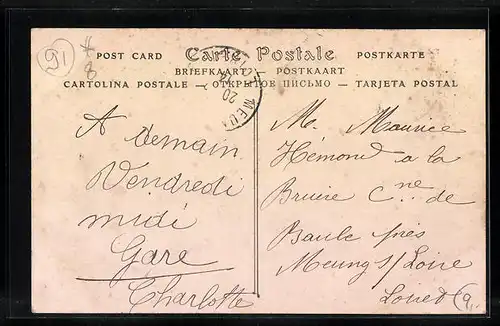 91
POST CARD Carte Postale POSTKARTE
BRIEFKAART — POSTKAART
CARTOLINA POSTALE — ОТКРЫТОЕ ПИСЬМО — TARJETA POSTAL
20
MEU
A demain
Vendredi
midi
Gare
Charlotte
M. Maurice
Hémond a la
Bruère Cne de
Baule près
Meung s/ Loire
Loiret